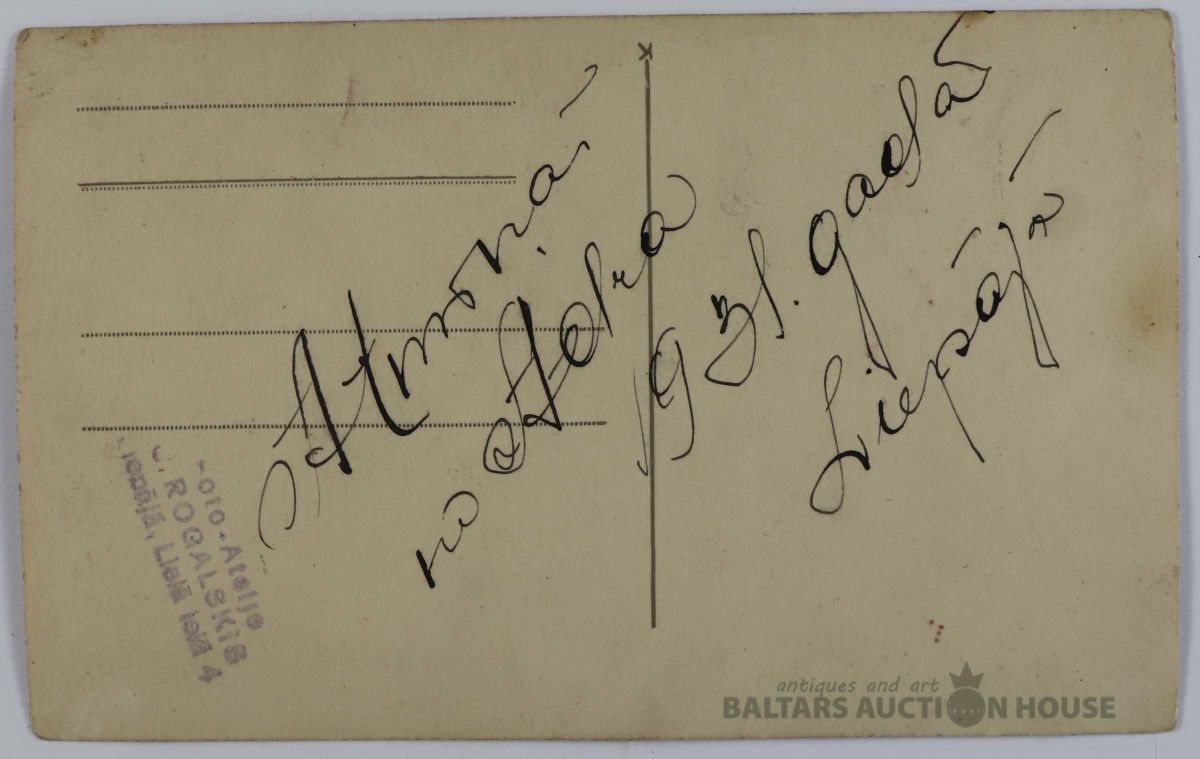 Atmiņā
no
1931. gadā
Liepājā
Foto-Ateljē
ROGALSKIS
Liepājā, Lielā ielā 4
antiques and art
BALTARS AUCTION HOUSE